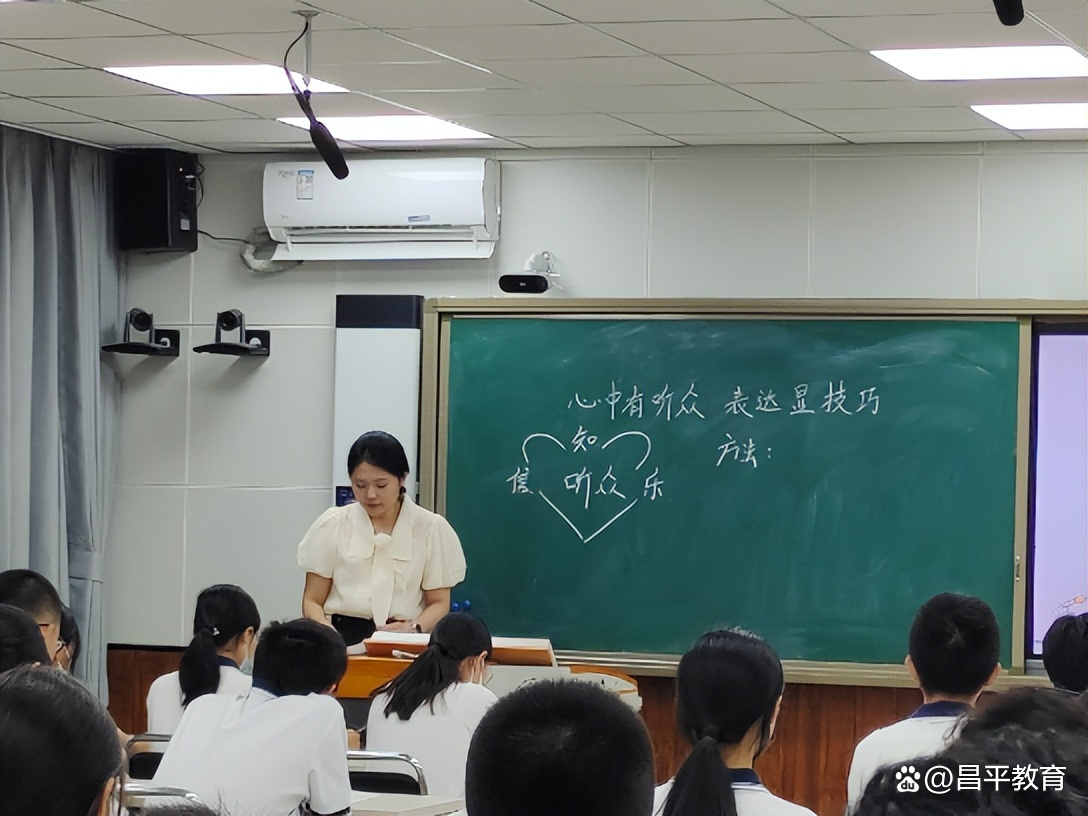 心中有听众 表达显技巧
知
方法：
信 听众 乐
@昌平教育